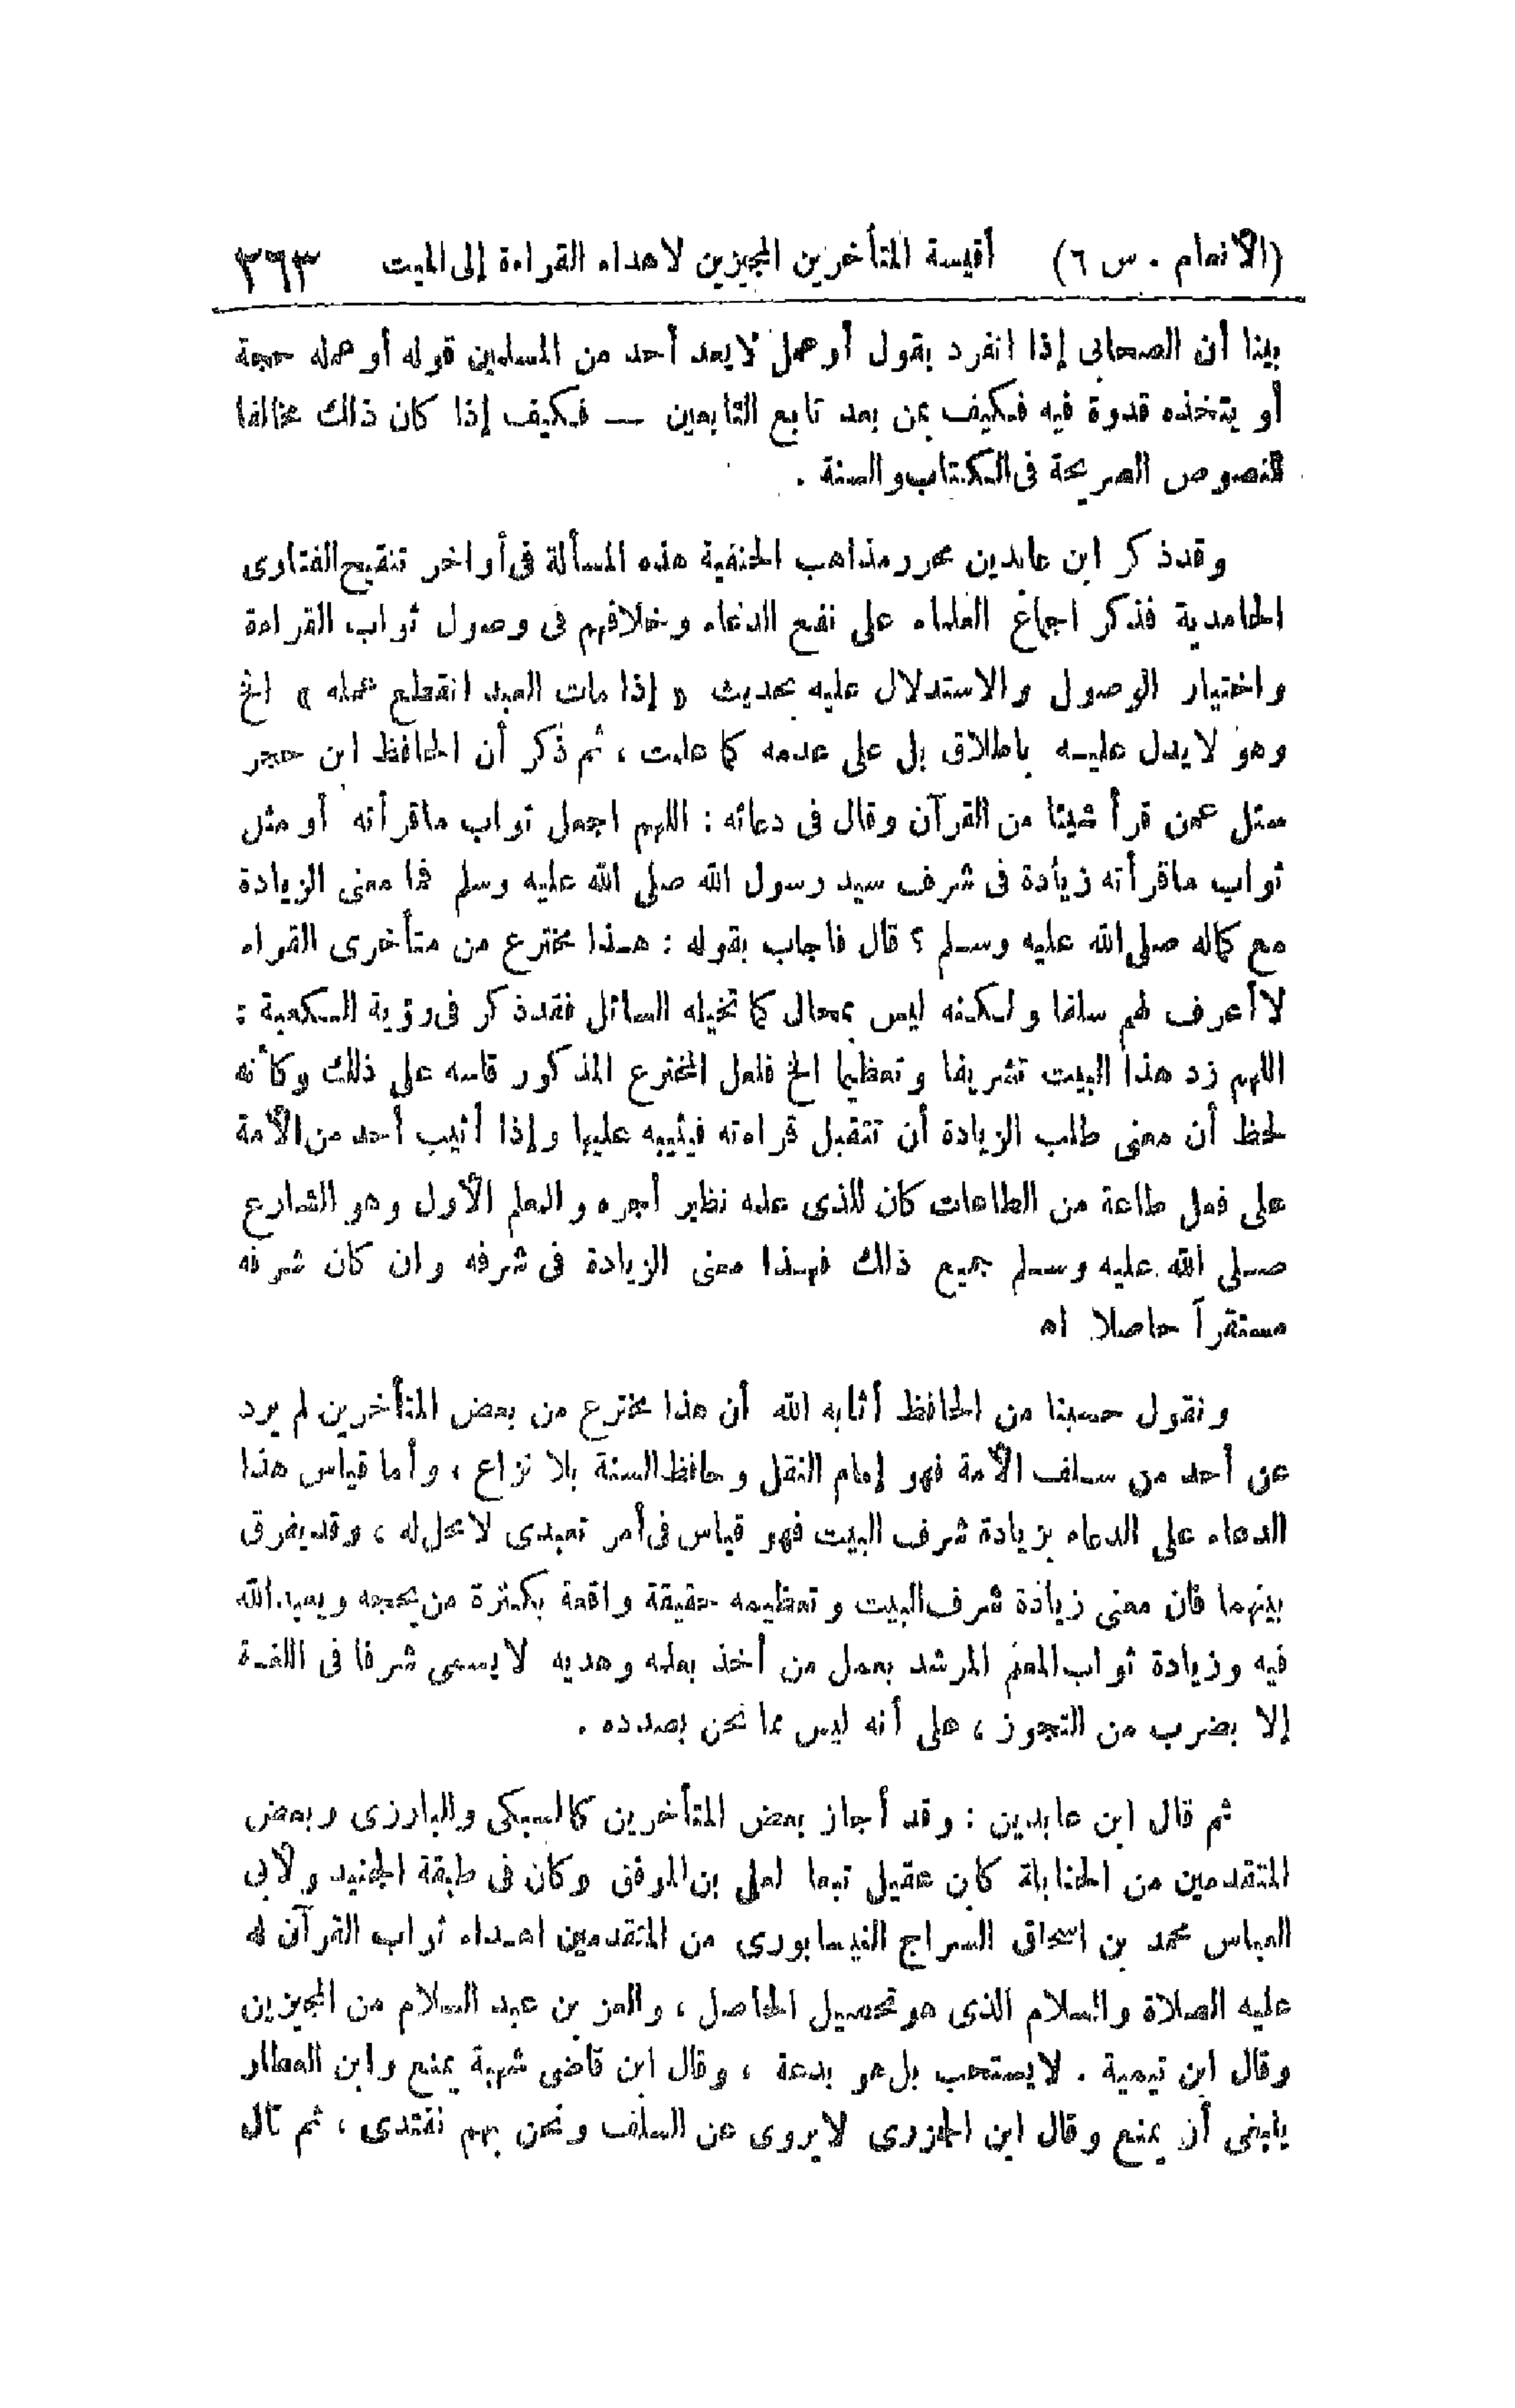 (الانعام . س ٦) أقيسة المتأخرين المجيزين لاهداء القراءة إلى الميت ٢٦٣
بينا أن الصحابى إذا انفرد بقول أو عمل لا يعد أحد من المسلمين قوله أو عمله حجة
أو يتخذه قدوة فيه فكيف بمن بعد تابع التابعين — فكيف إذا كان ذلك مخالفا
للنصوص الصريحة فى الكتاب والسنة .
وقد ذكر ابن عابدين محرر مذاهب الحنفية هذه المسألة فى أواخر تنقيح الفتاوى
الحامدية فذكر اجماع العلماء على نفع الدعاء وخلافهم فى وصول ثواب القراءة
واختيار الوصول والاستدلال عليه بحديث « إذا مات العبد انقطع عمله » الخ
وهو لا يدل عليه باطلاق بل على عدمه كما علمت ، ثم ذكر أن الحافظ ابن حجر
سئل عمن قرأ شيئا من القرآن وقال فى دعائه : اللهم اجعل ثواب ماقرأته أو مثل
ثواب ماقرأته زيادة فى شرف سيد رسول الله صلى الله عليه وسلم فما معنى الزيادة
مع كماله صلى الله عليه وسلم ؟ قال فاجاب بقوله : هذا مخترع من متأخرى القراء
لا أعرف لهم سلفا ولكنه ليس بمحال كما تخيله السائل فقد ذكر فى رؤية الكعبة :
اللهم زد هذا البيت تشريفا وتعظيما الخ فلعل المخترع المذكور قاسه على ذلك وكأنه
لحظ أن معنى طلب الزيادة أن تتقبل قراءته فيثيبه عليها وإذا أثيب أحد من الأمة
على فعل طاعة من الطاعات كان للذى علمه نظير أجره والمعلم الأول وهو الشارع
صلى الله عليه وسلم جميع ذلك فهذا معنى الزيادة فى شرفه وان كان شرفه
مستقرآ حاصلا اه
ونقول حسبنا من الحافظ أثابه الله أن هذا مخترع من بعض المتأخرين لم يرد
عن أحد من سلف الأمة فهو إمام النقل وحافظ السنة بلا نزاع ، وأما قياس هذا
الدعاء على الدعاء بزيادة شرف البيت فهو قياس فى أمر تعبدى لا محل له ، وقد يفرق
بينهما فان معنى زيادة شرف البيت وتعظيمه حقيقة واقعة بكثرة من يحجه ويعبد الله
فيه وزيادة ثواب المعلم المرشد بعمل من أخذ بعلمه وهديه لا يسمى شرفا فى اللغة
إلا بضرب من التجوز ، على أنه ليس مما نحن بصدده .
ثم قال ابن عابدين : وقد أجاز بعض المتأخرين كالسبكى والبارزى وبعض
المتقدمين من الحنابلة كابن عقيل تبعا لعلى بن الموفق وكان فى طبقة الجنيد ولأبى
العباس محمد بن اسحاق السراج النيسابورى من المتقدمين اهداء ثواب القرآن له
عليه الصلاة والسلام الذى هو تحصيل الحاصل ، والعز بن عبد السلام من المجيزين
وقال ابن تيمية . لا يستحب بل هو بدعة ، وقال ابن قاضى شهبة يمنع وابن العطار
ينبغى أن يمنع وقال ابن الجزرى لا يروى عن السلف ونحن بهم نقتدى ، ثم قال